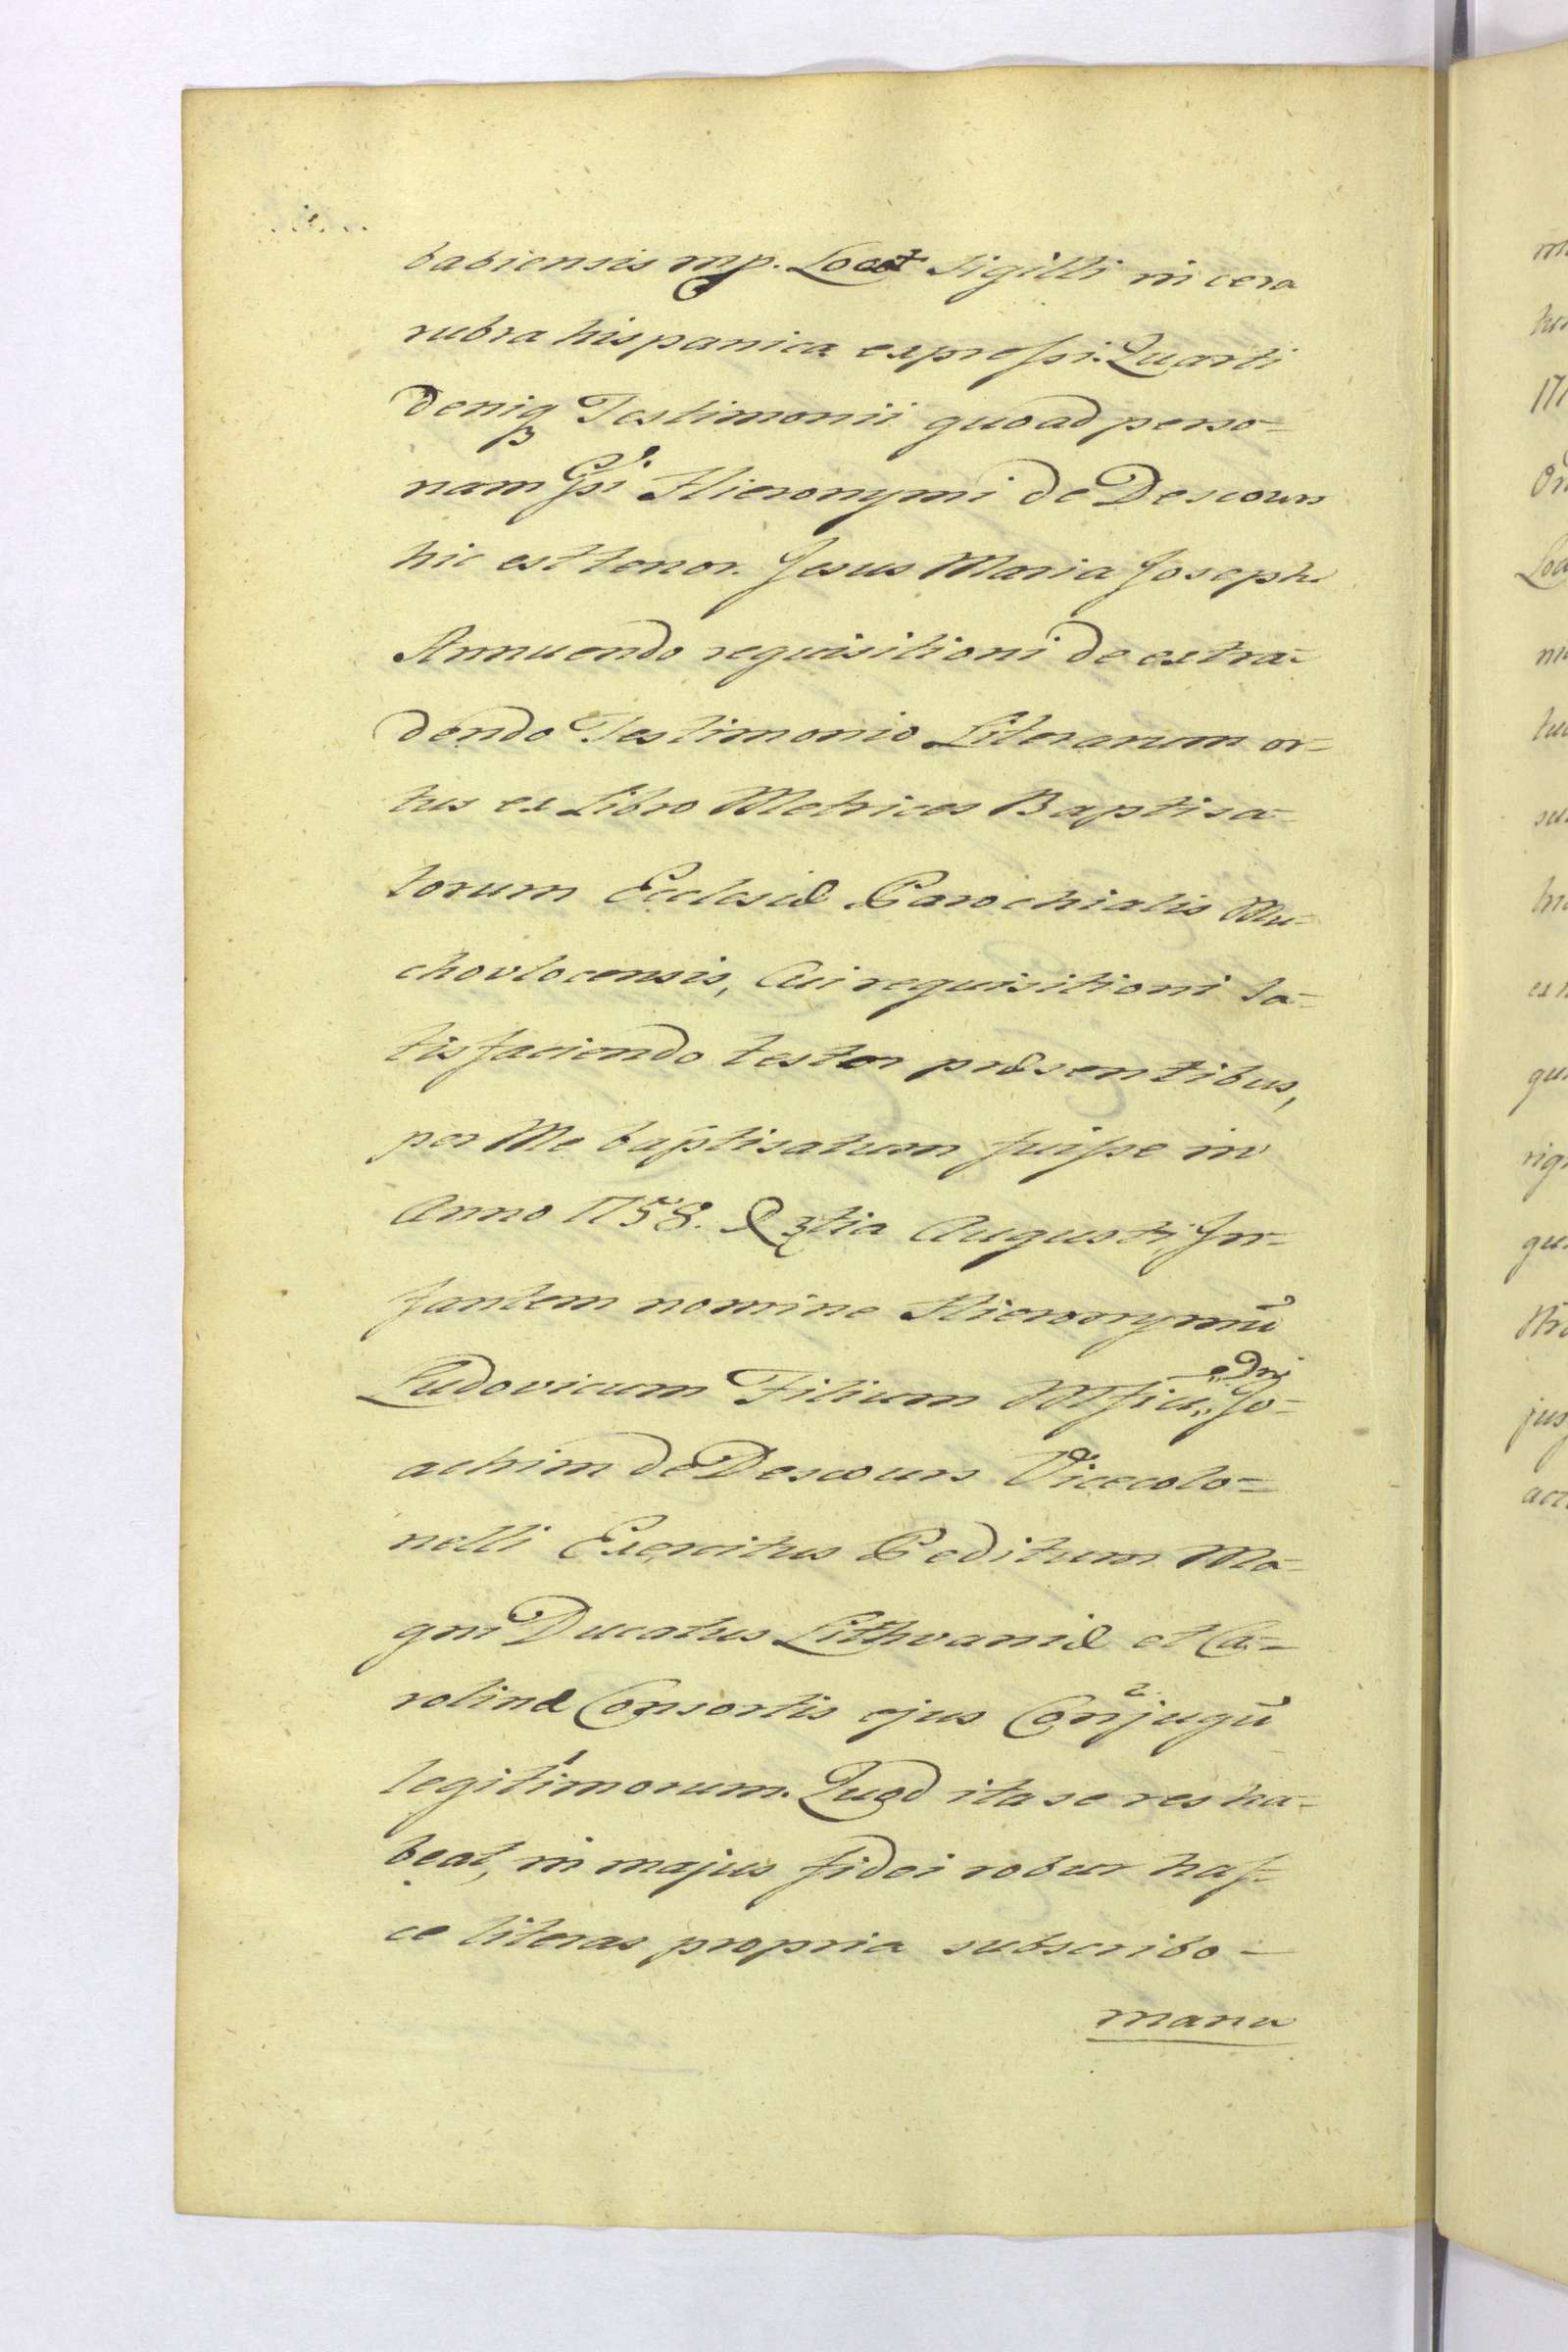 babiensis mp. Locꝰ Sigilli in cera
rubra hispanica expreſsi. Quarti
deniqꝫ Testimonii quoad perso=
nam Gsi Hieronymi de Descours
hic est tenor. Jesus Maria Joseph.
Annuendo requisitioni de extra=
dendo Testimonio Literarum or=
tus ex Libro Metrices Baptisa=
torum Ecclesiæ Parochialis Mu=
chovlocensis, Cui requisitioni sa=
tisfaciendo testor præsentibus,
per Me baptisatum fuiſse in
Anno 1758. 3tia Augusti In=
fantem nomine Hieronymū
Ludovicum Filium Mfici Dni Jo=
achim de Descours Vicecolo=
nelli Exercitus Peditum Ma=
gni Ducatus Lithvaniæ et Ca=
rolinæ Consortis ejus Conjugū
legitimorum. Quod ita se res ha=
beat, in majus fidei robur haſ=
ce literas propria subscribo=
manu